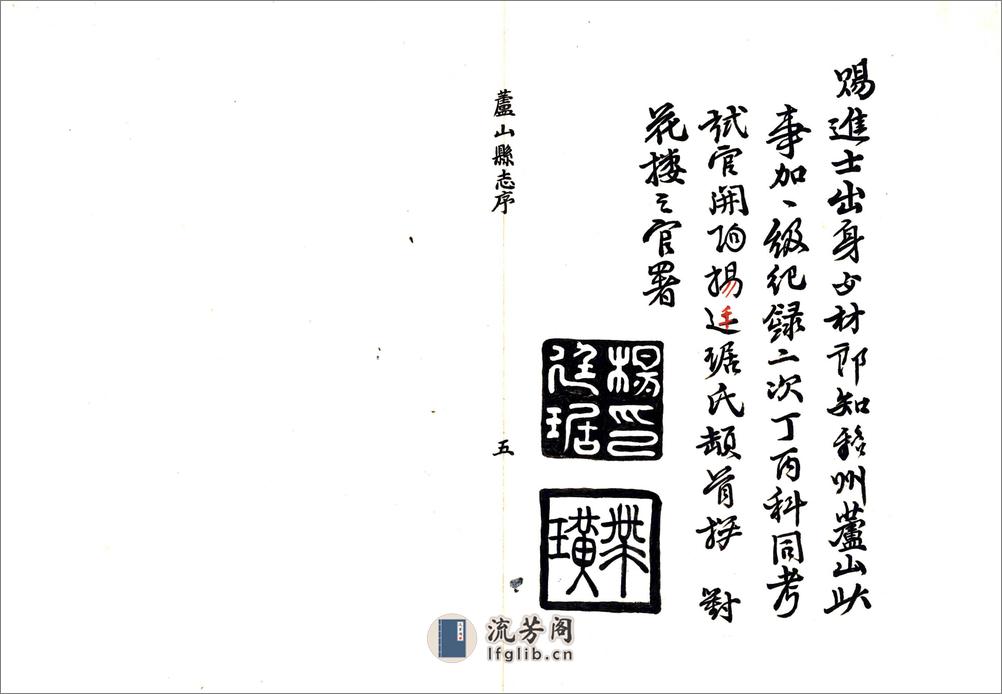 賜進士出身文林郎知雅州蘆山縣
事加一級紀錄二次丁酉科同考
試官開陽楊廷琚氏頓首撰 對
花樓之官署
楊印
廷琚
璜
蘆山縣志序
五
流芳阁
lfglib.cn